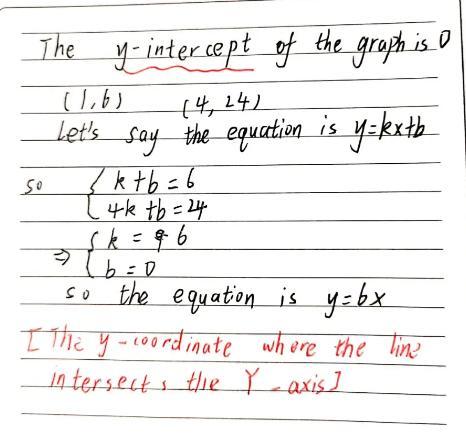 The y-intercept of the graph is 0
(1,6) (4,24)
Let's say the equation is y=kx+b
so { k+b=6
4k+b=24
⇒ { k = 6
b=0
so the equation is y=6x
[The y-coordinate where the line
intersects the Y-axis]